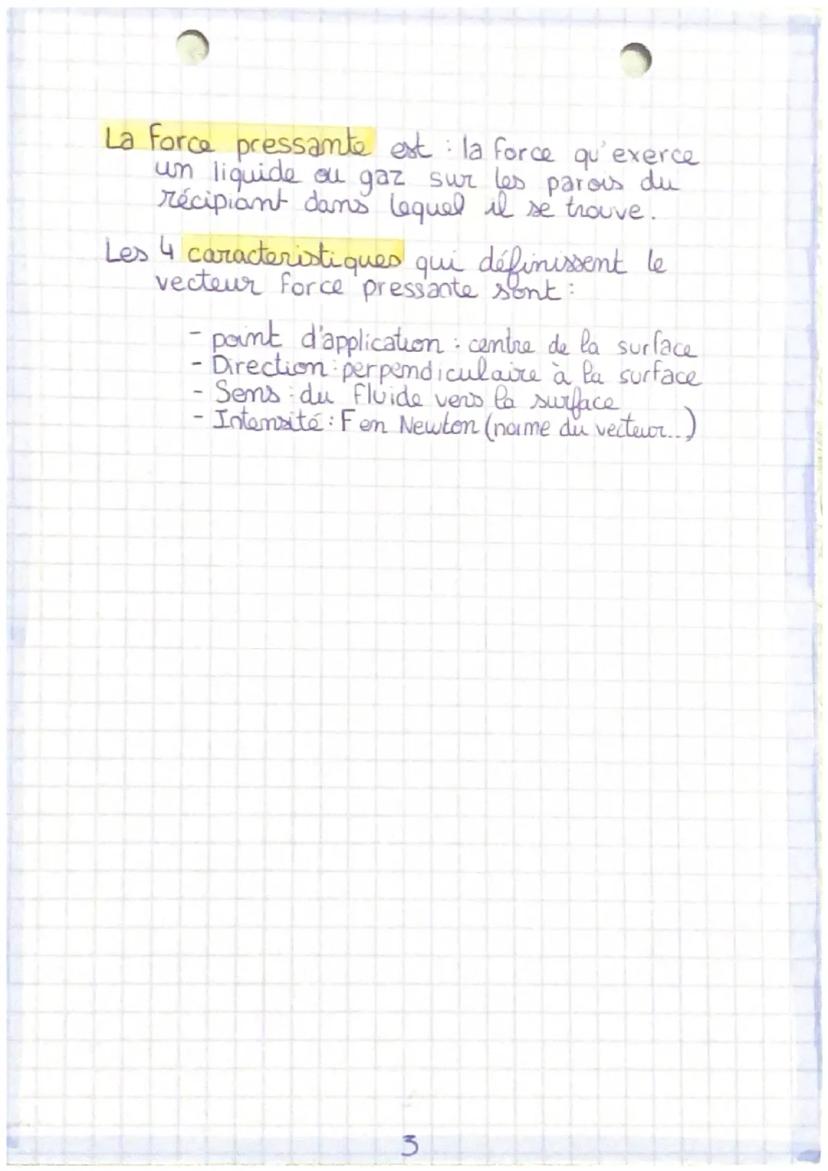 La force pressante est : la force qu'exerce
un liquide ou gaz sur les parois du
récipiant dans lequel il se trouve.
Les 4 caracteristiques qui définissent le
vecteur force pressante sont :
- point d'application : centre de la surface
- Direction : perpendiculaire à la surface
- Sens : du fluide vers la surface
- Intensité : F en Newton (norme du vecteur...)
3